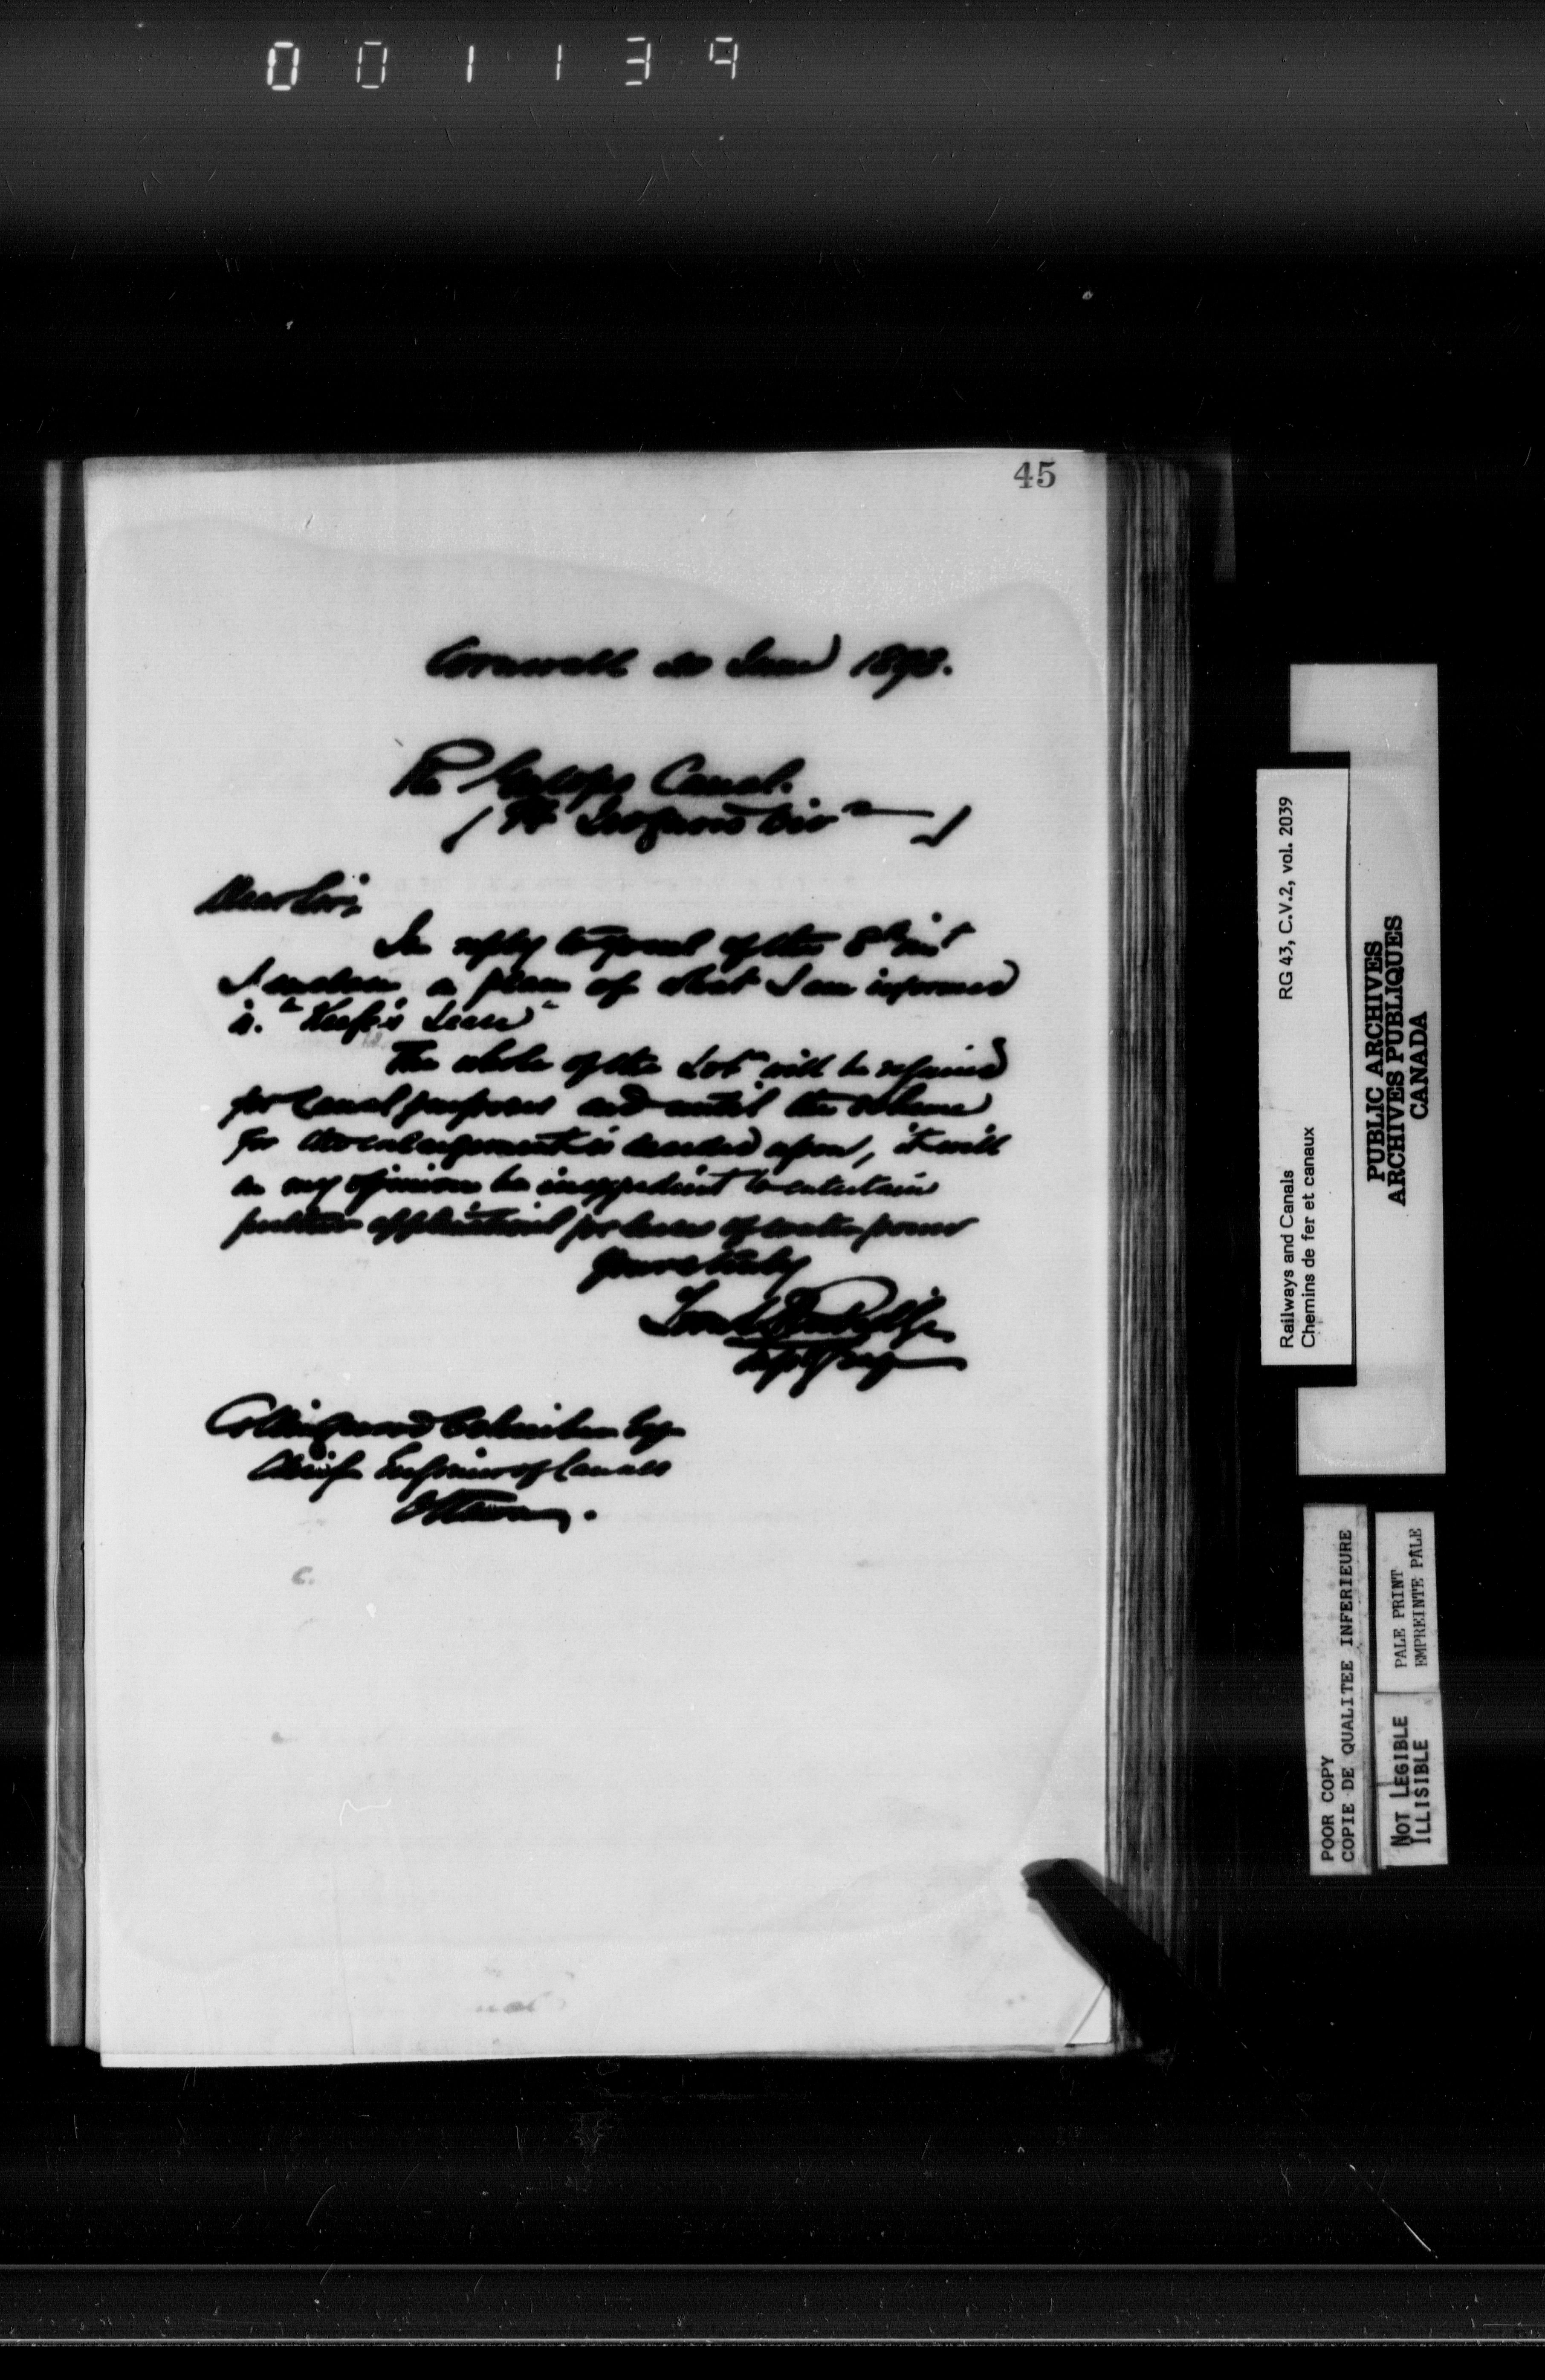 001139
45
Cornwall 20 June 1893.
Re Galops Canal.
( Pt Iroquois Divn )
Dear Sir,
In reply to yours of the 8th inst
I enclose a plan of what I am informed
is "Keefer's Lease"
The whole of the Lot will be required
for Canal purposes and until the scheme
for the enlargement is decided upon, it will
in my opinion be inexpedient to entertain
further applications for leases of water power
Yours truly
Supt Eng
Collingwood Schreiber Esq
Chief Engineer of Canals
Ottawa.
Railways and Canals RG 43, C.V.2, vol. 2039
Chemins de fer et canaux
PUBLIC ARCHIVES
ARCHIVES PUBLIQUES
CANADA
POOR COPY
COPIE DE QUALITEE INFERIEURE
PALE PRINT
EMPREINTE PALE
NOT LEGIBLE
ILLISIBLE